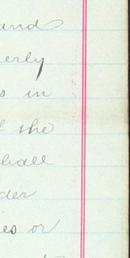 and
erly
s in
l the
hall
der
ies or